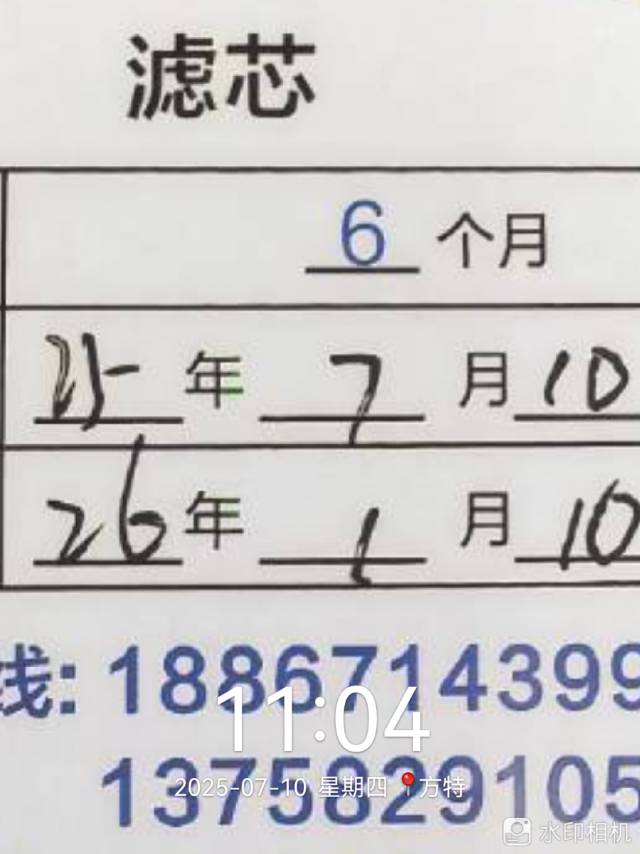 滤芯
6 个月
25 年 7 月 10
26 年 1 月 10
线: 1886714399
11:04
1375829105
2025-07-10 星期四 📍方特
水印相机